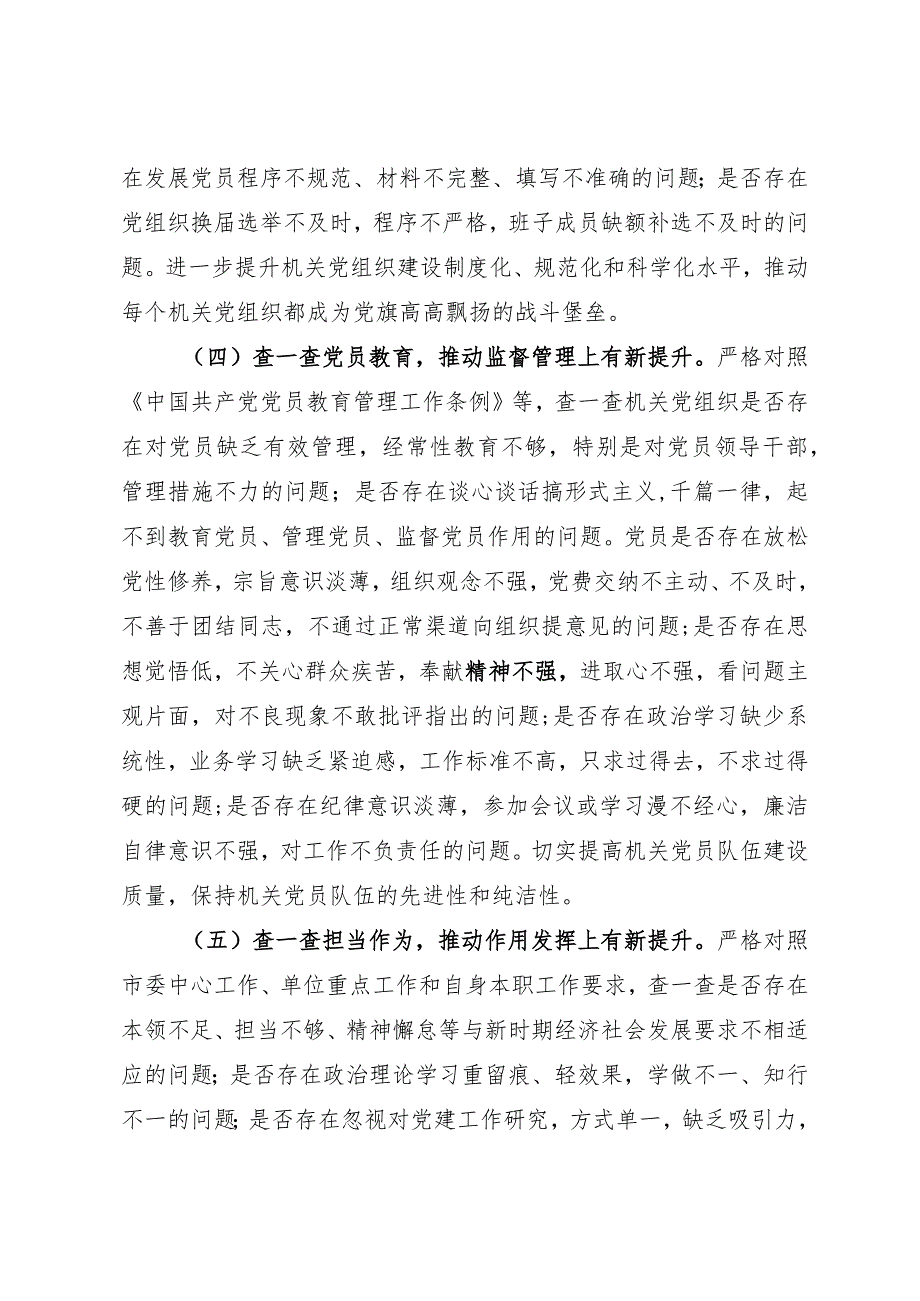 在发展党员程序不规范、材料不完整、填写不准确的问题；是否存在
党组织换届选举不及时，程序不严格，班子成员缺额补选不及时的问
题。进一步提升机关党组织建设制度化、规范化和科学化水平，推动
每个机关党组织都成为党旗高高飘扬的战斗堡垒。
（四）查一查党员教育，推动监督管理上有新提升。严格对照
《中国共产党党员教育管理工作条例》等，查一查机关党组织是否存
在对党员缺乏有效管理，经常性教育不够，特别是对党员领导干部，
管理措施不力的问题；是否存在谈心谈话搞形式主义,千篇一律，起
不到教育党员、管理党员、监督党员作用的问题。党员是否存在放松
党性修养，宗旨意识淡薄，组织观念不强，党费交纳不主动、不及时，
不善于团结同志，不通过正常渠道向组织提意见的问题;是否存在思
想觉悟低，不关心群众疾苦，奉献精神不强，进取心不强，看问题主
观片面，对不良现象不敢批评指出的问题;是否存在政治学习缺少系
统性，业务学习缺乏紧迫感，工作标准不高，只求过得去，不求过得
硬的问题;是否存在纪律意识淡薄，参加会议或学习漫不经心，廉洁
自律意识不强，对工作不负责任的问题。切实提高机关党员队伍建设
质量，保持机关党员队伍的先进性和纯洁性。
（五）查一查担当作为，推动作用发挥上有新提升。严格对照
市委中心工作、单位重点工作和自身本职工作要求，查一查是否存在
本领不足、担当不够、精神懈怠等与新时期经济社会发展要求不相适
应的问题；是否存在政治理论学习重留痕、轻效果，学做不一、知行
不一的问题；是否存在忽视对党建工作研究，方式单一，缺乏吸引力，